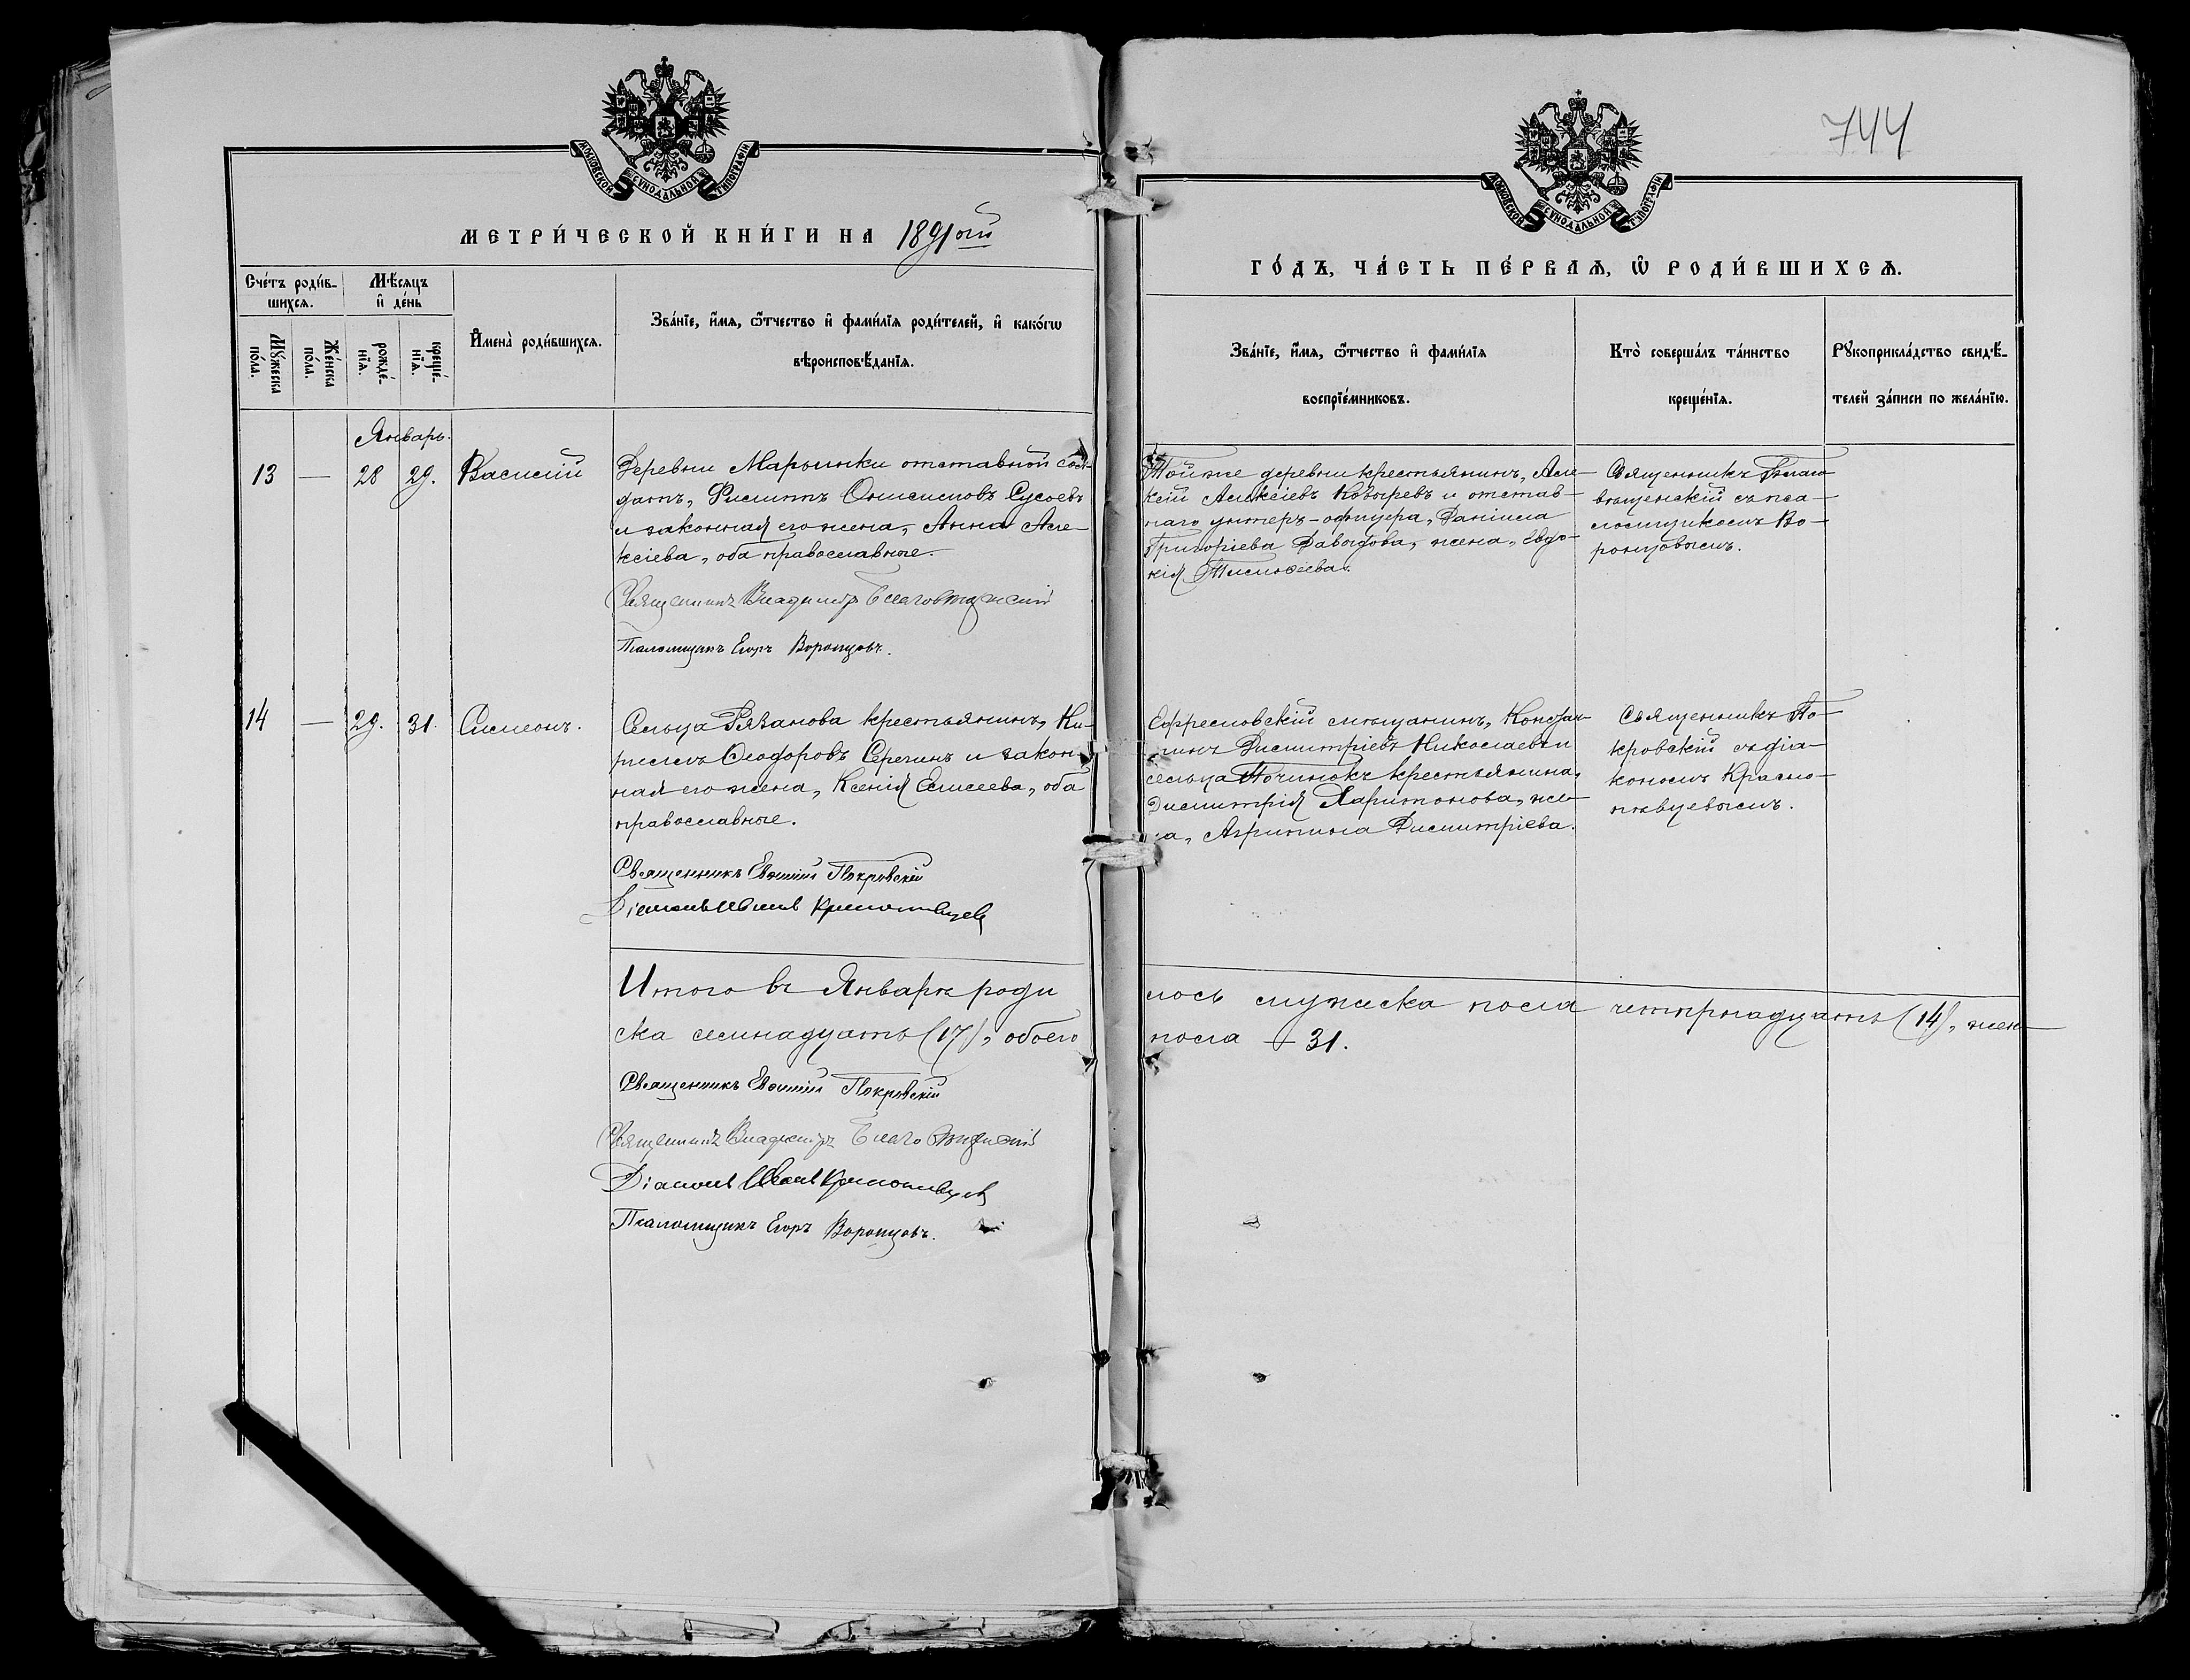 МОСКОВСКОЙ СѴНОДАЛЬНОЙ ТИПОГРАФІИ
МЕТРИ́ЧЕСКОЙ КНИ́ГИ НА 1891ой
Сче́тъ роди́в-
шихсѧ.
Мѣ́сѧцъ
и҆ де́нь
Мꙋ́жеска
по́ла.
Же́нска
по́ла.
рожде́-
нїѧ.
креще́-
нїѧ.
И҆мена̀ роди́вшихсѧ.
Зва́нїе, и҆́мѧ, ѻ҆́тчество и҆ фами́лїѧ роди́телей, и҆ како́гѡ
вѣроисповѣ́данїѧ.
Январь.
13 — 28 29. Василій
Деревни Марьинки отставной сол-
датъ, Филиппъ Онисимовъ Сусоевъ
и законная его жена, Анна Але-
ксіева, оба православные.
Священникъ Владиміръ Благовѣщенскій
Псаломщикъ Егоръ Воронцовъ.
14 — 29. 31. Симеонъ.
Сельца Рязанова крестьянинъ, Ки-
риллъ Ѳеодоровъ Серегинъ и закон-
ная его жена, Ксенія Елисеева, оба
православные.
Священникъ Евѳимій Покровскій
Діаконъ Іоаннъ Краснопѣвцевъ
Итого въ Январѣ роди
ска семнадцать (17), обоего
Священникъ Евѳимій Покровскій
Священникъ Владиміръ Благовѣщенскій
Діаконъ Іоаннъ Краснопѣвцевъ
Псаломщикъ Егоръ Воронцовъ.
744
МОСКОВСКОЙ СѴНОДАЛЬНОЙ ТИПОГРАФІИ
ГО́ДЪ, ЧА́СТЬ ПЕ́РВАѦ, Ѡ҆ РОДИ́ВШИХСѦ.
Зва́нїе, и҆́мѧ, ѻ҆́тчество и҆ фами́лїѧ
воспрїе́мниковъ.
Кто̀ соверша́лъ та́инство
креще́нїѧ.
Рꙋкоприкла́дство свидѣ́-
телей за́писи по жела́нїю.
Той же деревни крестьянинъ, Але-
ксій Алексіевъ Козыревъ и отстав-
наго унтеръ-офицера, Даніила
Григоріева Давыдова, жена, Евдо-
кія Тимоѳеева.
Священникъ Благо-
вѣщенскій съ пса-
ломщикомъ Во-
ронцовымъ.
Ефремовскій мѣщанинъ, Констан-
тинъ Димитріевъ Николаевъ и
сельца Починокъ крестьянина,
Димитрія Харитонова, же-
на, Агрипина Димитріева.
Священникъ По-
кровскій съ діа-
кономъ Красно-
пѣвцевымъ.
лось мужеска пола четырнадцать (14), жен-
пола — 31.